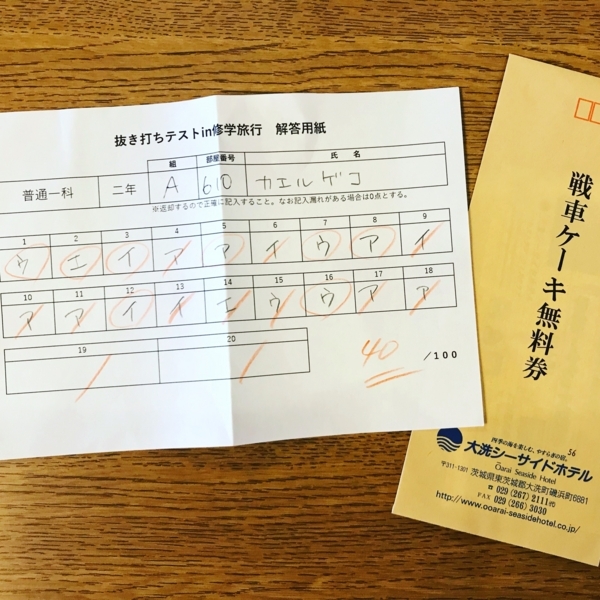 抜き打ちテストin修学旅行 解答用紙
組 部屋番号 氏名
普通一科 二年 A 610 カエルゲコ
※返却するので正確に記入すること。なお記入漏れがある場合は0点とする。
1 2 3 4 5 6 7 8 9
ウ エ イ ア ア イ ウ ア イ
10 11 12 13 14 15 16 17 18
ア ア イ イ エ ウ ウ ア ア
19 20
40 /100
戦車ケーキ無料券
四季の海を楽しむ、やすらぎの宿。 56
大洗シーサイドホテル
Oarai Seaside Hotel
〒311-1301 茨城県東茨城郡大洗町磯浜町6881
☎ 029 (267) 2111㈹
FAX 029 (266) 3030
http://www.ooarai-seasidehotel.co.jp/